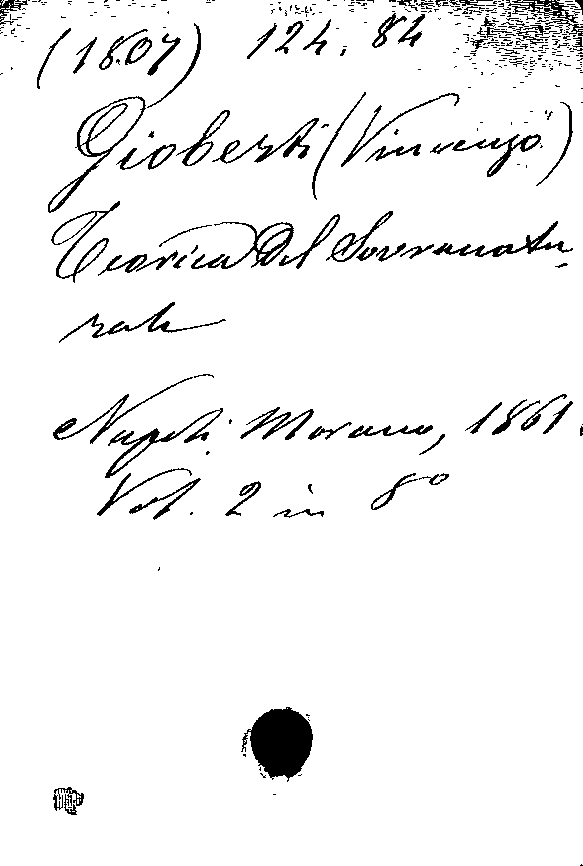 (1807) 124. 84
Gioberti (Vincenzo)
Teorica del Sovranatu-
rale
Napoli. Morano, 1861.
Vol. 2 in 8º